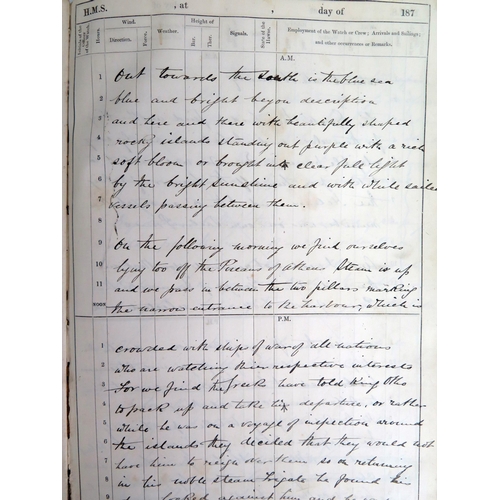 H.M.S. , at , day of 187
Hours. Wind. Direction. Force. Weather. Height of Bar. Ther. Signals. State of the Employment of the Watch or Crew; Arrivals and Sailings; and other occurrences or Remarks.
A.M.
1 Out towards the south is the blue sea
2 blue and bright beyon description
3 and here and there with beautifully shaped
4 rocky islands standing out purple with a rich
5 soft bloom or brought into clear full light
6 by the bright sunshine and with white sailed
7 vessels passing between them.
8
9 On the following morning we find ourselves
10 lying too off the Piraeus of Athens Steam is up
11 and we pass in between the two pillars marking
NOON the narrow entrance to the harbour, which is
P.M.
1 crowded with ships of war of all nations
2 who are watching their respective interests
3 For we find the Greek have told King Otho
4 to pack up and take his departure, or rather
5 while he was on a voyage of inspection around
6 the islands they decided that they would not
7 have him to reign over them so on returning
8 in his noble steam frigate he found his
looked against him and he